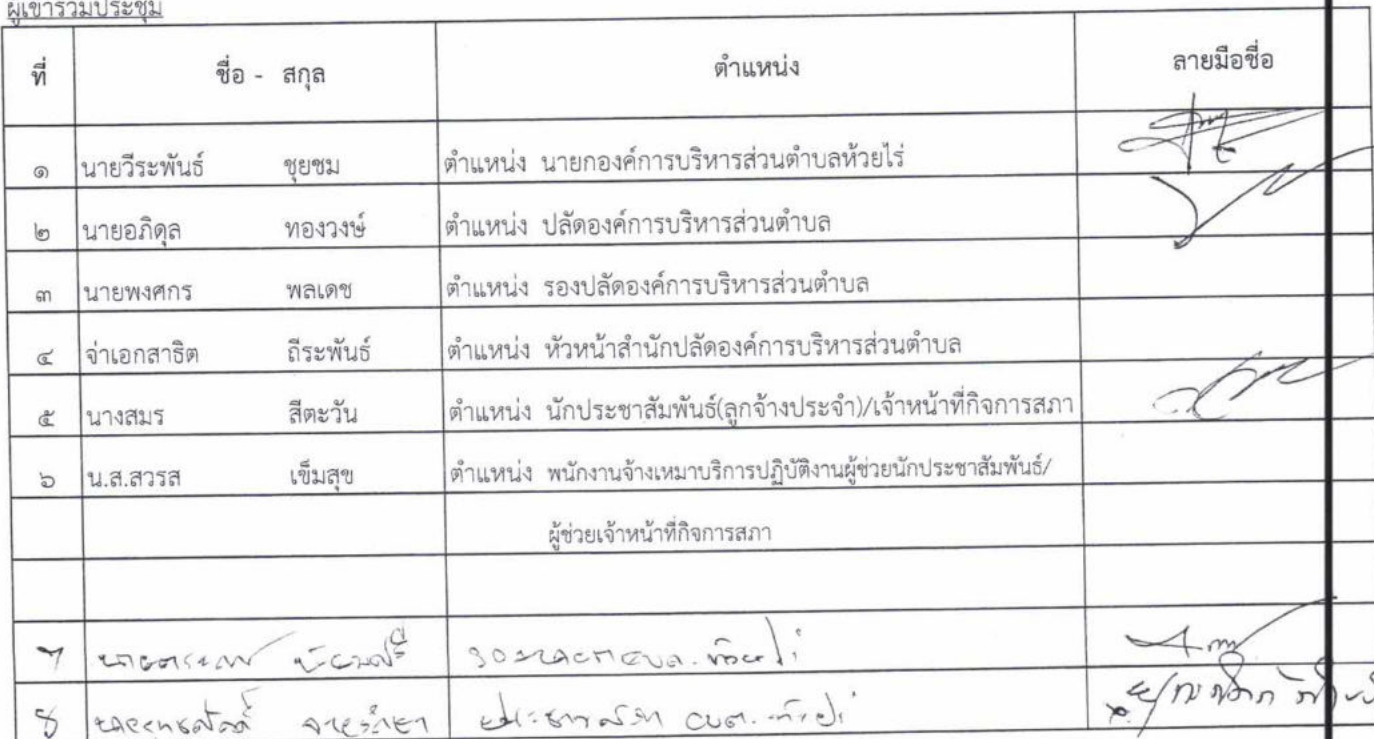 ผู้เข้าร่วมประชุม
ที่ ชื่อ - สกุล ตำแหน่ง ลายมือชื่อ
๑ นายวีระพันธ์ ชุยชม ตำแหน่ง นายกองค์การบริหารส่วนตำบลห้วยไร่
๒ นายอภิดุล ทองวงษ์ ตำแหน่ง ปลัดองค์การบริหารส่วนตำบล
๓ นายพงศกร พลเดช ตำแหน่ง รองปลัดองค์การบริหารส่วนตำบล
๔ จ่าเอกสาธิต ถีระพันธ์ ตำแหน่ง หัวหน้าสำนักปลัดองค์การบริหารส่วนตำบล
๕ นางสมร สีตะวัน ตำแหน่ง นักประชาสัมพันธ์(ลูกจ้างประจำ)/เจ้าหน้าที่กิจการสภา
๖ น.ส.สวรส เข็มสุข ตำแหน่ง พนักงานจ้างเหมาบริการปฏิบัติงานผู้ช่วยนักประชาสัมพันธ์/
ผู้ช่วยเจ้าหน้าที่กิจการสภา
๗ รองนายก อบต.ห้วยไร่
๘ ประธานสภา อบต.ห้วยไร่